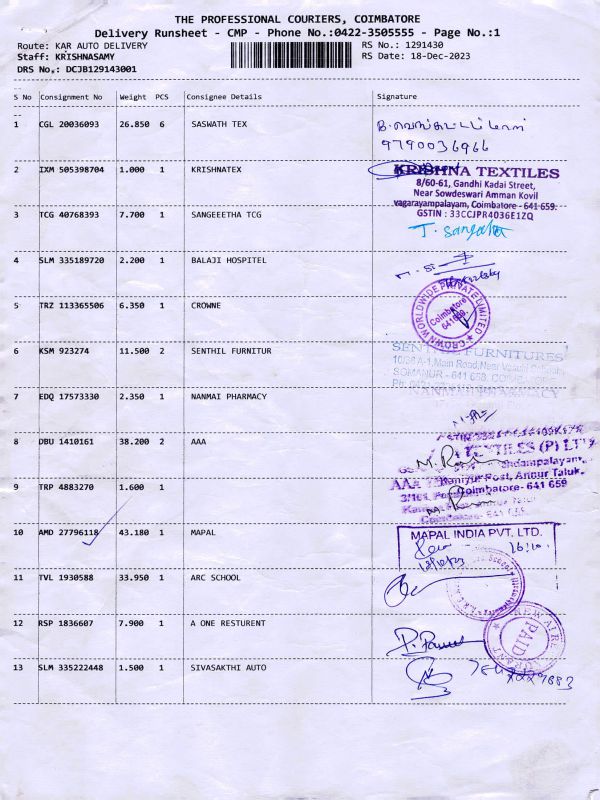 THE PROFESSIONAL COURIERS, COIMBATORE
Delivery Runsheet - CMP - Phone No.:0422-3505555 - Page No.:1
Route: KAR AUTO DELIVERY RS No.: 1291430
Staff: KRISHNASAMY RS Date: 18-Dec-2023
DRS No.: DCJB129143001
S No Consignment No Weight PCS Consignee Details Signature
1 CGL 20036093 26.850 6 SASWATH TEX
9790036966
2 IXM 505398704 1.000 1 KRISHNATEX
KRISHNA TEXTILES
8/60-61, Gandhi Kadai Street,
Near Sowdeswari Amman Kovil
vagarayampalayam, Coimbatore - 641 659.
GSTIN : 33CCJPR4036E1ZQ
3 TCG 40768393 7.700 1 SANGEEETHA TCG
T. Sangeetha
4 SLM 335189720 2.200 1 BALAJI HOSPITEL
5 TRZ 113365506 6.350 1 CROWNE
CROWN WORLDWIDE PRIVATE LIMITED
Coimbatore
6 KSM 923274 11.500 2 SENTHIL FURNITUR
SENTHIL FURNITURES
SOMANUR - 641 668
7 EDQ 17573330 2.350 1 NANMAI PHARMACY
NANMAI PHARMACY
8 DBU 1410161 38.200 2 AAA
TEXTILES (P) LTD
Kaniyur Post, Annur Taluk.
Coimbatore- 641 659
9 TRP 4883270 1.600 1
10 AMD 27796118 43.180 1 MAPAL
MAPAL INDIA PVT. LTD.
11 TVL 1930588 33.950 1 ARC SCHOOL
12 RSP 1836607 7.900 1 A ONE RESTURENT
PAID
13 SLM 335222448 1.500 1 SIVASAKTHI AUTO